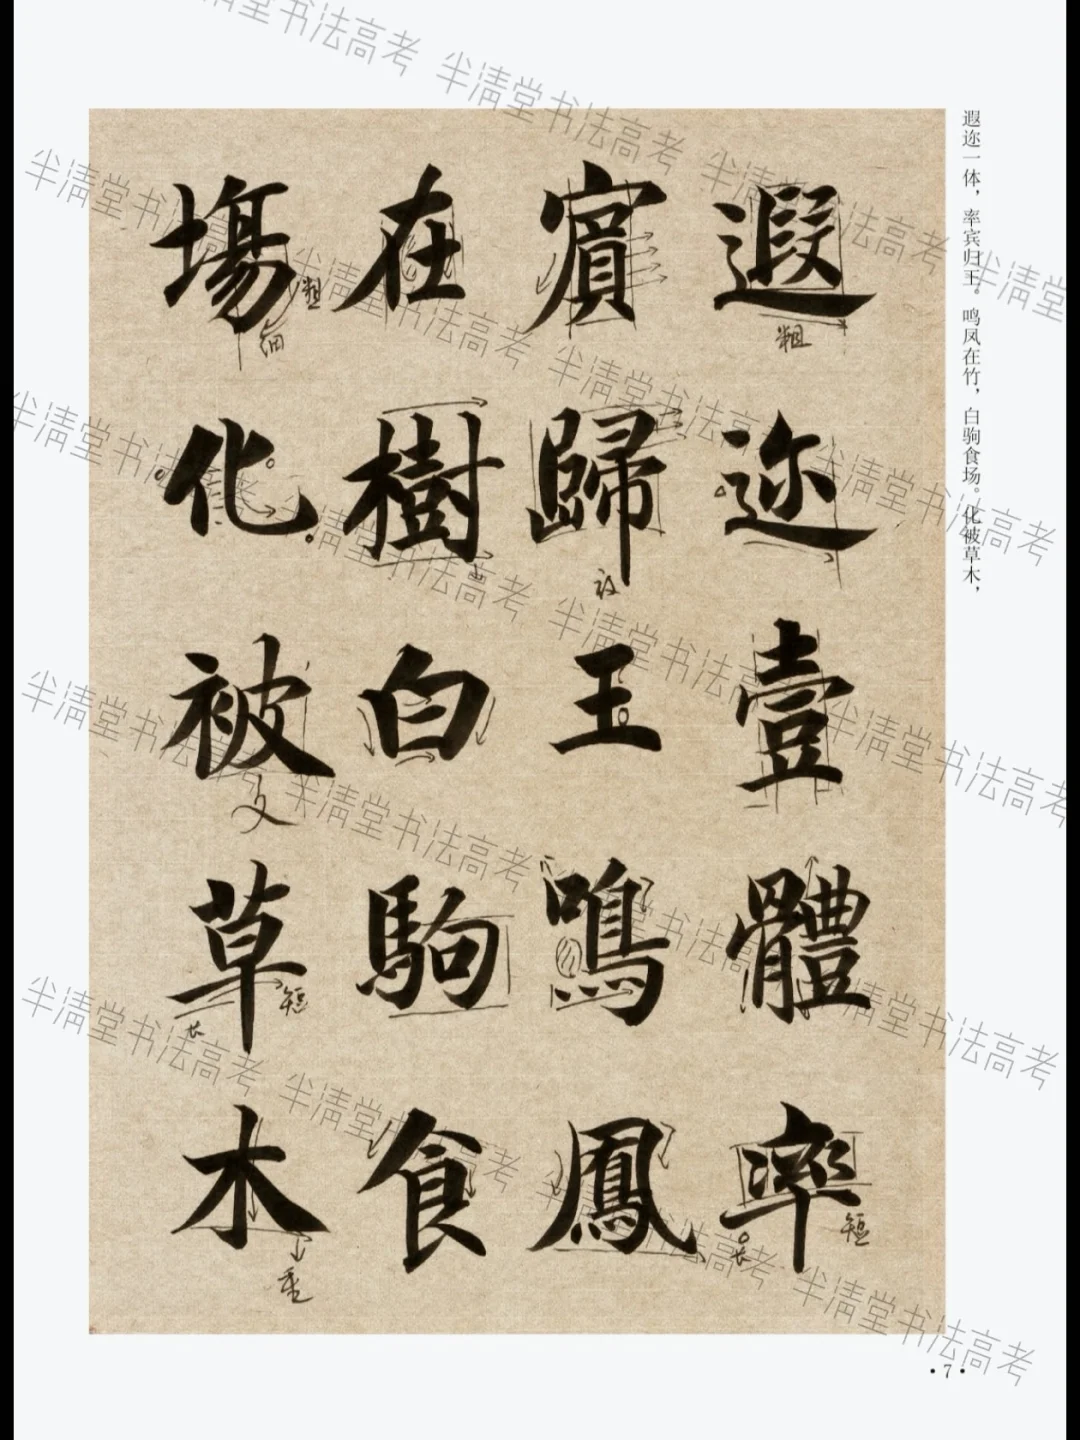 遐迩一体，率宾归王。鸣凤在竹，白驹食场。化被草木，
遐迩壹體率
賓歸王鳴鳳
在樹白駒食
場化被草木
粗
短
长
细
粗
短
长
垂
半清堂书法高考
·7·